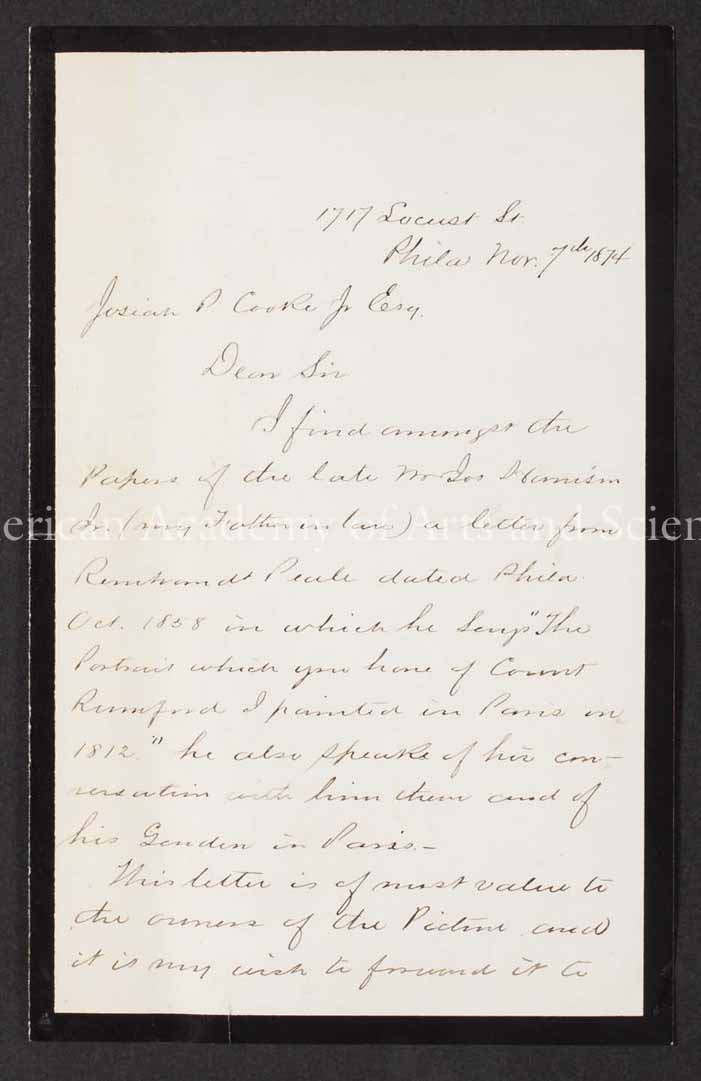 1717 Locust St.
Phila Nov. 7th 1874
Josiah P Cooke Jr Esq.
Dear Sir
I find amongst the
Papers of the late Mr Jos Harrison
Jr (my Father in law) a letter from
American Academy of Arts and Scien
Rembrandt Peale dated Phila.
Oct. 1858 in which he says "The
Portrait which you have of Count
Rumford I painted in Paris in
1812." he also speaks of his con-
versation with him there and of
his Garden in Paris.-
This letter is of most value to
the owners of the Picture and
it is my wish to forward it to